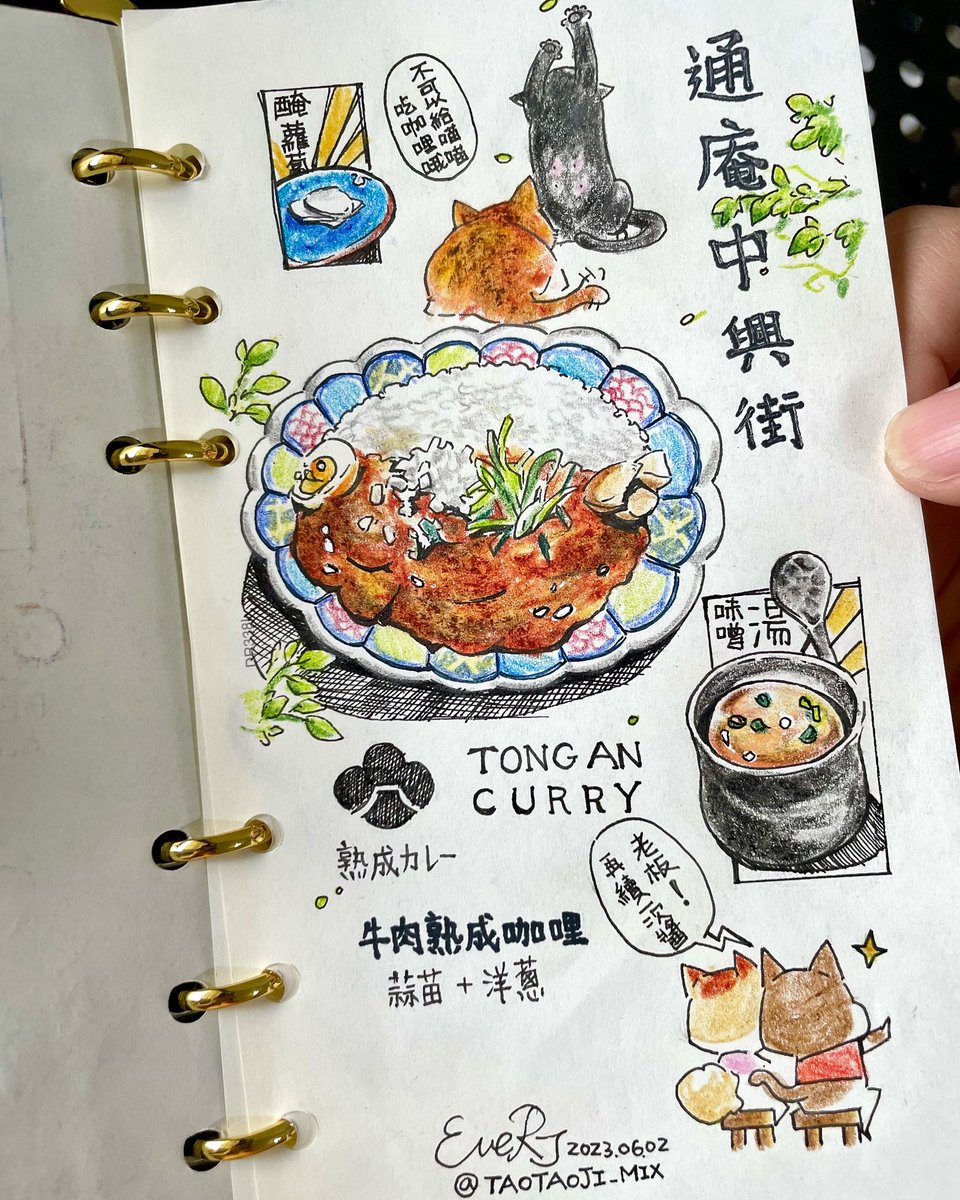 通庵中興街
醃蘿蔔
不可以給喵喵
吃咖哩哦
味噌湯
TONGAN
CURRY
熟成カレー
老板!
再續一次醬
牛肉熟成咖哩
蒜苗+洋蔥
EveRJ 2023.06.02
@TAOTAOJI_MIX